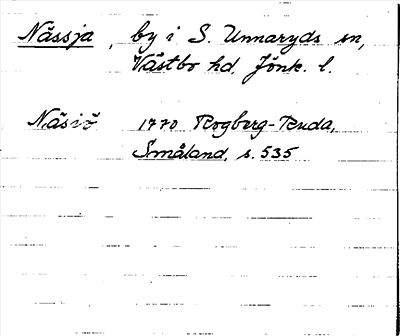 Nässja, by i S. Unnaryds sn,
Västbo hd, Jönk. l.
Näsiö 1770 Rogberg-Ruda,
Småland, s. 535